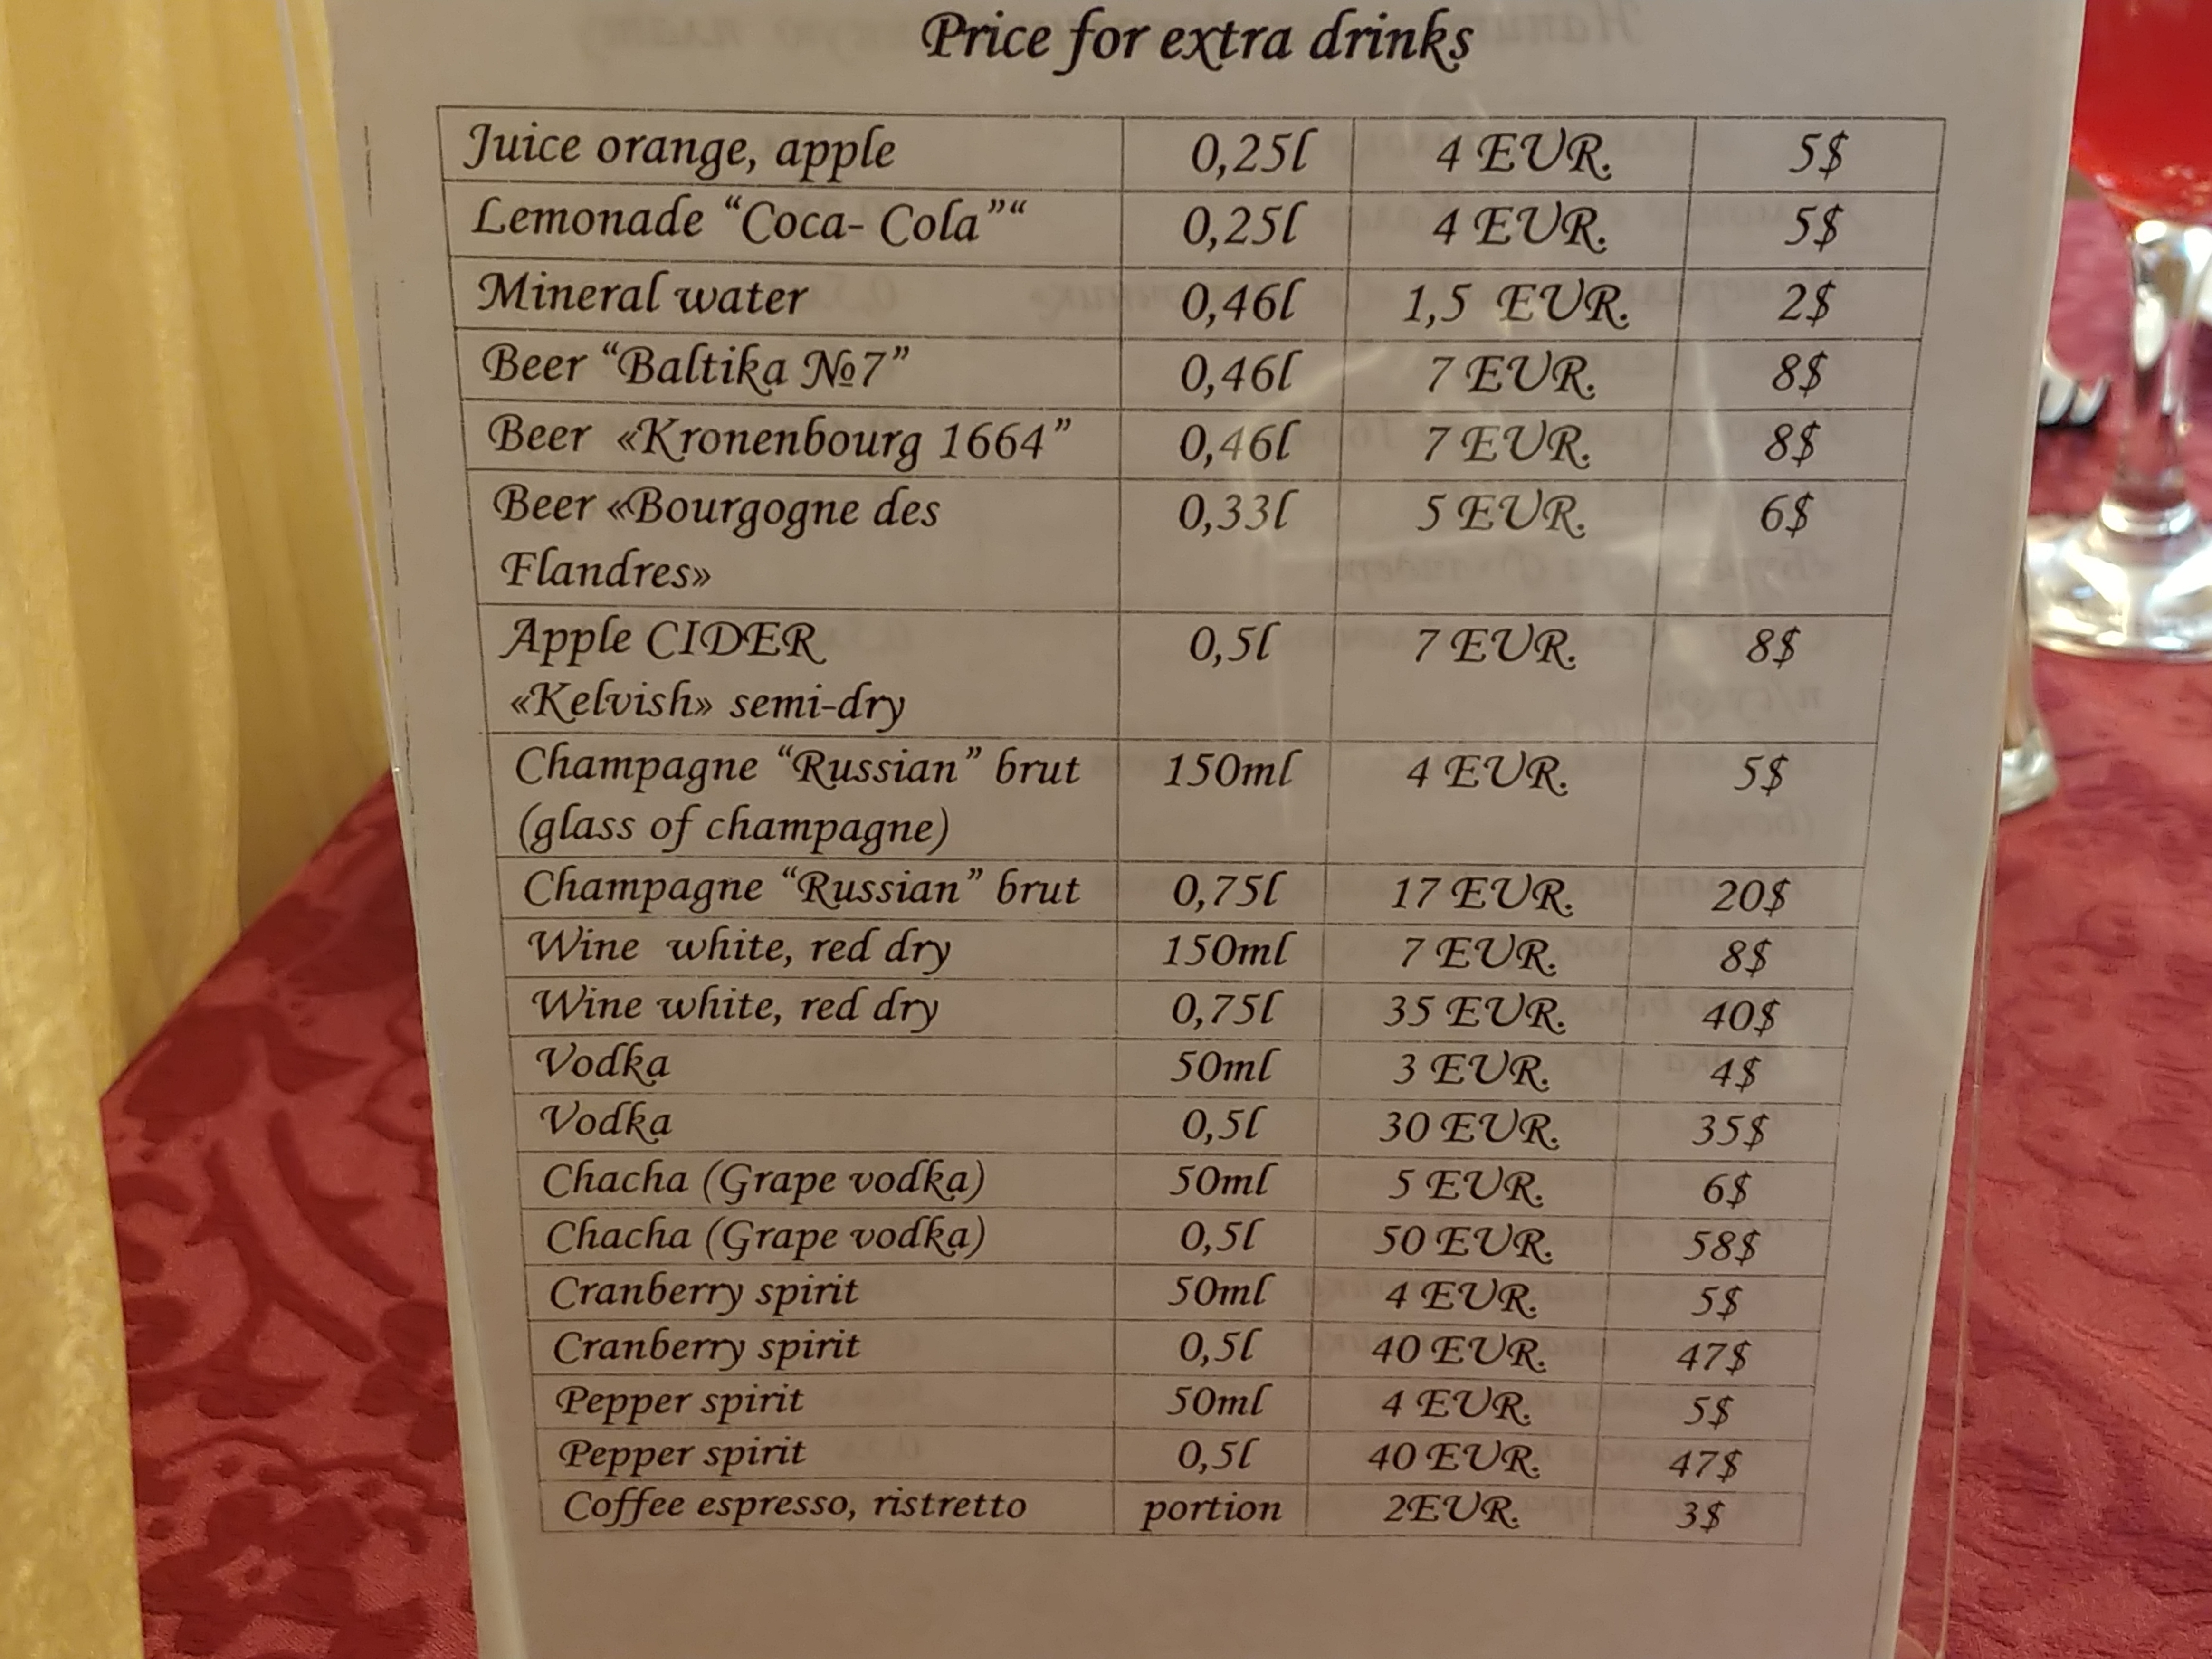 Price for extra drinks
Juice orange, apple 0,25l 4 EUR. 5$
Lemonade “Coca- Cola”“ 0,25l 4 EUR. 5$
Mineral water 0,46l 1,5 EUR. 2$
Beer “Baltika №7” 0,46l 7 EUR. 8$
Beer «Kronenbourg 1664” 0,46l 7 EUR. 8$
Beer «Bourgogne des 0,33l 5 EUR. 6$
Flandres»
Apple CIDER 0,5l 7 EUR. 8$
«Kelvish» semi-dry
Champagne “Russian” brut 150ml 4 EUR. 5$
(glass of champagne)
Champagne “Russian” brut 0,75l 17 EUR. 20$
Wine white, red dry 150ml 7 EUR. 8$
Wine white, red dry 0,75l 35 EUR. 40$
Vodka 50ml 3 EUR. 4$
Vodka 0,5l 30 EUR. 35$
Chacha (Grape vodka) 50ml 5 EUR. 6$
Chacha (Grape vodka) 0,5l 50 EUR. 58$
Cranberry spirit 50ml 4 EUR. 5$
Cranberry spirit 0,5l 40 EUR. 47$
Pepper spirit 50ml 4 EUR. 5$
Pepper spirit 0,5l 40 EUR. 47$
Coffee espresso, ristretto portion 2EUR. 3$